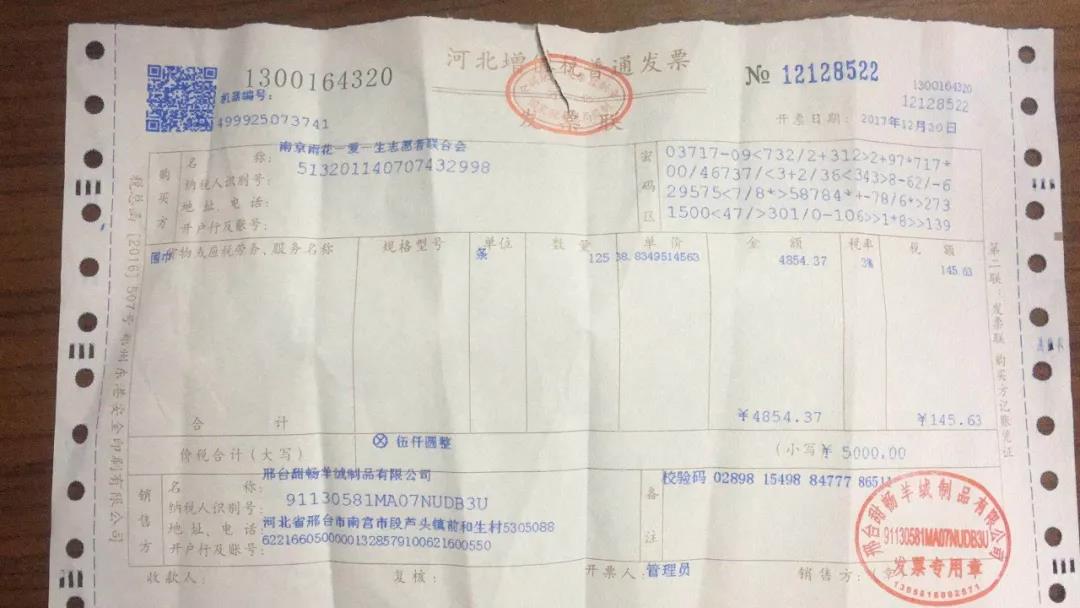 河北增值税普通发票
发票联
1300164320
№ 12128522
1300164320
12128522
机器编号:
499925073741
开票日期: 2017年12月20日
税总函〔2016〕507号
购买方
名称: 南京雨花一爱一生志愿者联合会
纳税人识别号: 513201140707432998
地址、电话:
开户行及账号:
密码区
03717-09<732/2+312>2+97*717*
00/46737/<3+2/36<343>8-62/-6
29575<7/8*>58784*+-78/6*>273
1500<47/>301/0-106>>1*8>>139
货物或应税劳务、服务名称 规格型号 单位 数量 单价 金额 税率 税额
围巾 条 125 38.8349514563 4854.37 3% 145.63
合计 ¥4854.37 ¥145.63
价税合计(大写) ⊗ 伍仟圆整 (小写) ¥ 5000.00
销售方
名称: 邢台甜畅羊绒制品有限公司
纳税人识别号: 91130581MA07NUDB3U
地址、电话: 河北省邢台市南宫市段芦头镇前和生村5305088
开户行及账号: 6221660500000132857910062160055​0
备注
校验码 02898 15498 84777 86511
收款人: 复核: 开票人: 管理员 销售方:
第二联:发票联 购买方记账凭证
邢台甜畅羊绒制品有限公司
91130581MA07NUDB3U
发票专用章